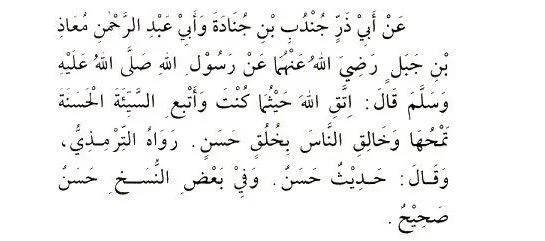 عَنْ أَبِيْ ذَرٍّ جُنْدُبِ بْنِ جُنَادَةَ وَأَبِيْ عَبْدِ الرَّحْمٰنِ مُعَاذِ
بْنِ جَبَلٍ رَضِيَ اللهُ عَنْهُمَا عَنْ رَسُوْلِ اللهِ صَلَّى اللهُ عَلَيْهِ
وَسَلَّمَ قَالَ: اِتَّقِ اللهَ حَيْثُمَا كُنْتَ وَأَتْبِعِ السَّيِّئَةَ الْحَسَنَةَ
تَمْحُهَا وَخَالِقِ النَّاسَ بِخُلُقٍ حَسَنٍ. رَوَاهُ التِّرْمِذِيُّ،
وَقَالَ: حَدِيْثٌ حَسَنٌ. وَفِيْ بَعْضِ النُّسَخِ حَسَنٌ
صَحِيْحٌ.